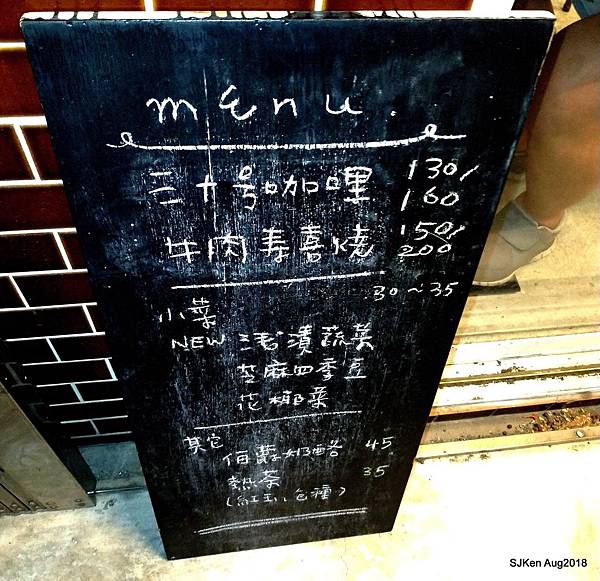 menu.
三十号咖哩 130/160
牛肉寿喜燒 150/200
小菜 30~35
NEW 浅漬蔬菜
芝麻四季豆
花椰菜
其它
伯爵奶酪 45
熱茶 35